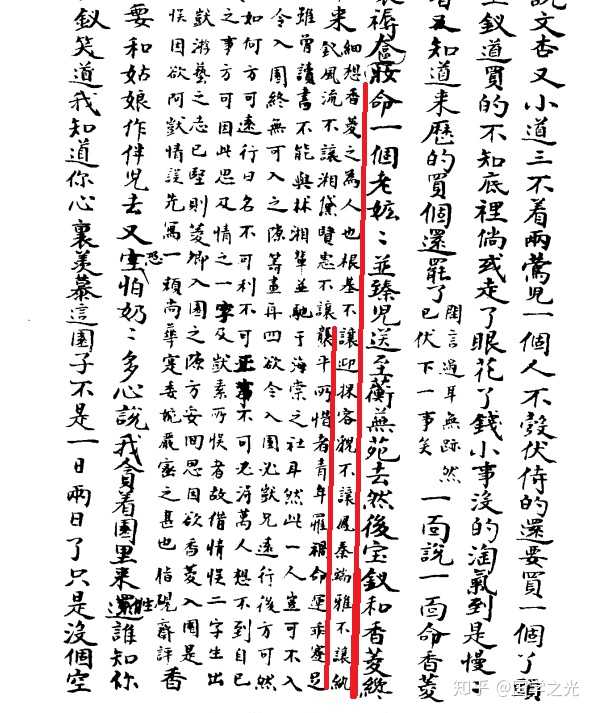 說文杏又小道三不着兩鶯児一個人不彀伏侍的還要買一個了頭
釵道買的不知底裡倘或走了眼花了錢小事没的淘氣到是慢〻
又知道来歴的買個還罷了
閑言過耳無跡然
已伏下一事矣
一面說一面命香菱
褥盦粧命一個老嫲〻並臻児送至蘅蕪苑去然後宝釵和香菱終
来
細想香菱之為人也根基不讓迎探容貌不讓鳳秦端雅不讓紈
釵風流不讓湘黛賢恵不讓襲平所惜者青年罹禍命運乖蹇足
雖曾讀書不能與林湘輩並馳于海棠之社耳然此一人豈可不入
令入園終無可入之隙籌畫再四欲令入園必獃兄遠行後方可然
如何方可遠行曰名不可利不可正事不可必得萬人想不到自已
之事方可因此思及情之一字及獃素所悮者故借情悮二字生出
獃游藝之志已堅則菱卿入園之隙方妥回思因欲香菱入園是
悮因欲阿獃情誤先寫一頼尚華寔委婉嚴密之甚也脂硯齋評
香
要和姑娘作伴児去又恐怕奶〻多心說我貪着園里来頑誰知你
釵笑道我知道你心裏羡慕這園子不是一日兩日了只是没個空
知乎 @国学之光